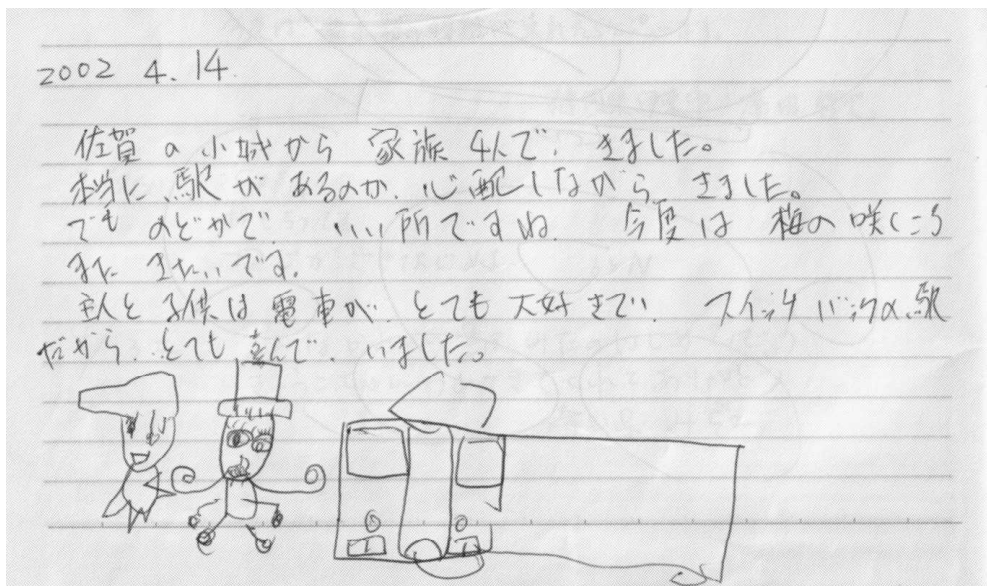 2002 4.14.
佐賀の小城から 家族4人で.きました。
本当に.駅があるのか.心配しながら きました。
でも のどかで. いい所ですね. 今度は 梅の咲くころ
また きたいです.
主人と子供は電車が.とても大好きで. スイッチバックの.駅
だから.とても 喜んで.いました。